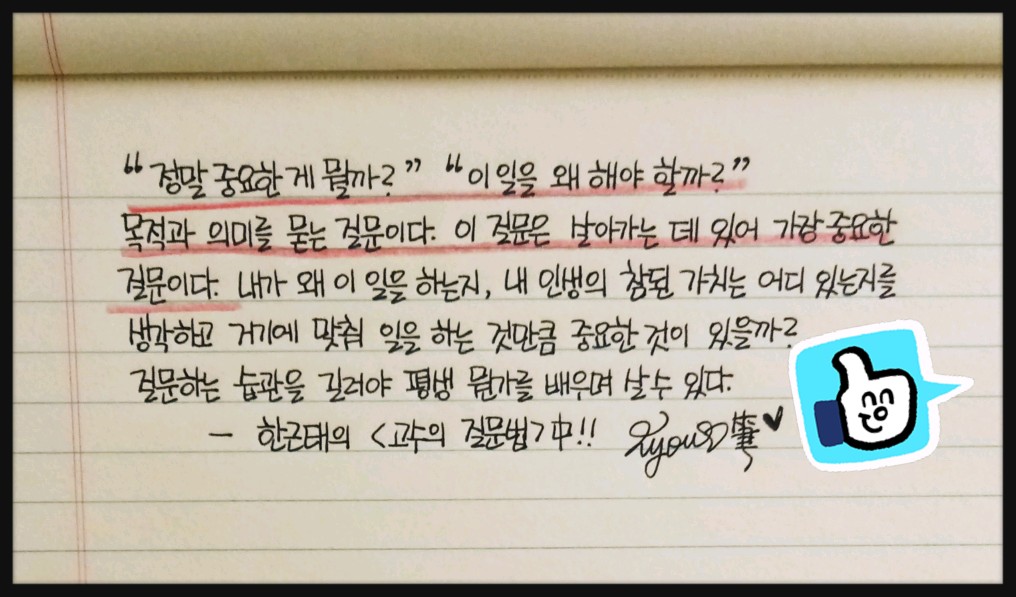 “정말 중요한 게 뭘까?” “이 일을 왜 해야 할까?”
목적과 의미를 묻는 질문이다. 이 질문은 살아가는 데 있어 가장 중요한
질문이다. 내가 왜 이 일을 하는지, 내 인생의 참된 가치는 어디 있는지를
생각하고 거기에 맞춰 일을 하는 것만큼 중요한 것이 있을까?
질문하는 습관을 길러야 평생 뭔가를 배우며 살 수 있다.
- 한근태의 <고수의 질문법>中!!